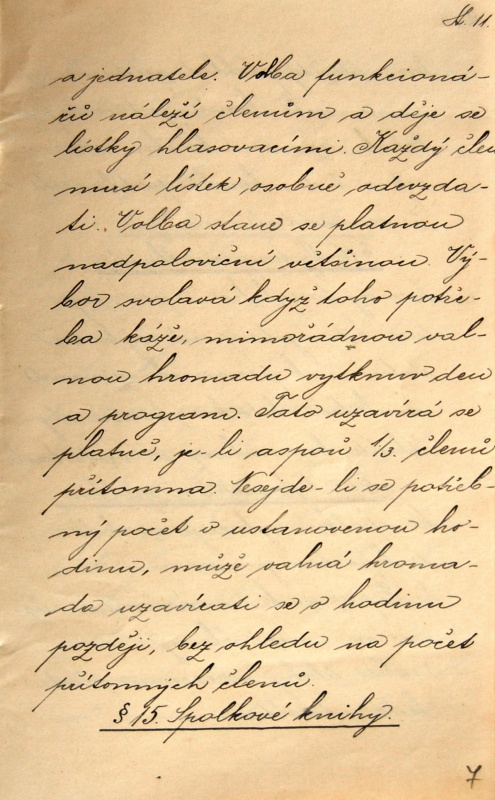 St. 11.
a jednatele. Volba funkcioná-
řů náleží členům a děje se
lístky hlasovacími. Každý člen
musí lístek osobně odevzda-
ti. Volba stane se platnou
nadpoloviční většinou. Vý-
bor svolává když toho potře-
ba káže, mimořádnou val-
nou hromadu vytknuv den
a program. Tato uzavírá se
platně, je-li aspoň 1/3. členů
přítomna. Nesejde-li se potřeb-
ný počet v ustanovenou ho-
dinu, může valná hroma-
da uzavírati se o hodinu
později, bez ohledu na počet
přítomných členů.
§ 15. Spolkové knihy.
7